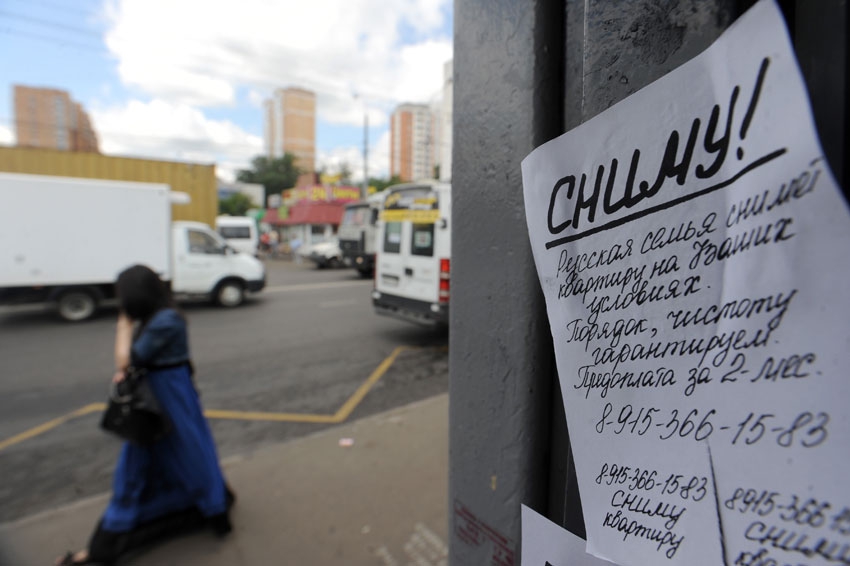 СНИМУ!
Русская семья снимет
квартиру на Ваших
условиях.
Порядок, чистоту
гарантируем.
Предоплата за 2-мес.
8-915-366-15-83
8-915-366-1583
сниму
квартиру
8915-366-15
сниму
кварти